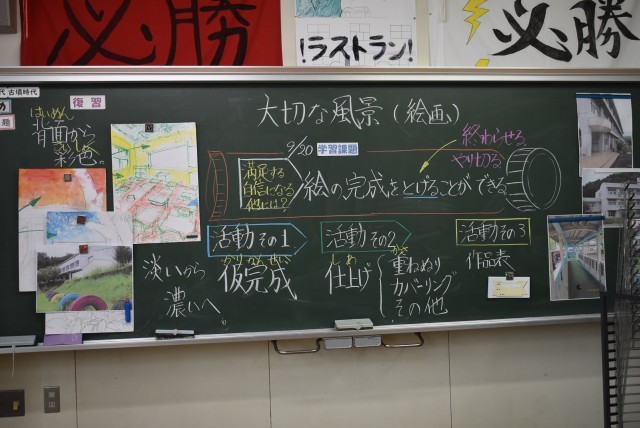 必勝
!ラストラン!
必勝
代 古墳時代
め
題
復習
大切な風景(絵画)
はいめん
背面から
彩色。
9/20
学習課題
終わらせる。
やり切る。
満足する
自信になる
他には?
絵の完成をとげることができる。
活動その1
活動その2
活動その3
淡いから
濃いへ。
かりかんせい
仮完成
しあ
仕上げ
かさ
重ねぬり
カバーリング
その他
作品表